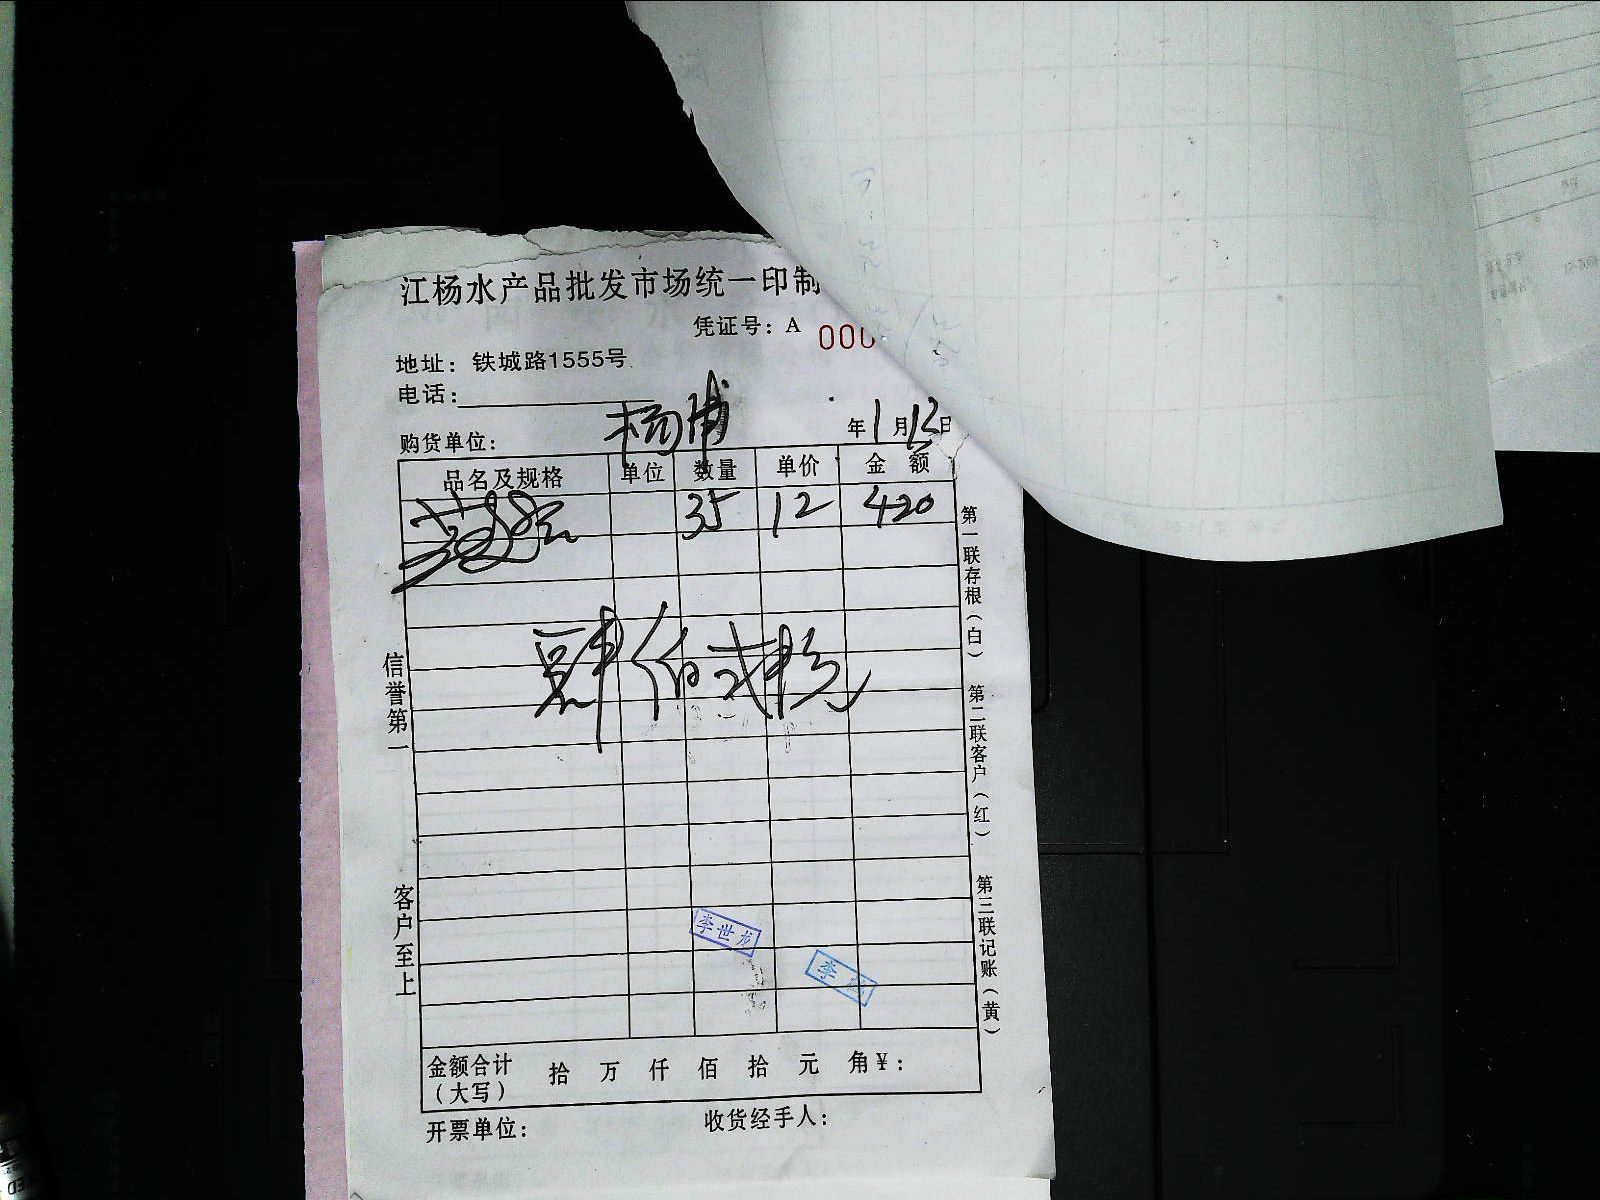 江杨水产品批发市场统一印制
凭证号：A 000
地址：铁城路1555号
电话：
购货单位： 杨浦 年1月12日
品名及规格 单位 数量 单价 金额
35 12 420
肆佰贰拾元
信誉第一
客户至上
第一联存根（白） 第二联客户（红） 第三联记账（黄）
李世龙
李
金额合计（大写） 拾 万 仟 佰 拾 元 角¥：
开票单位： 收货经手人：